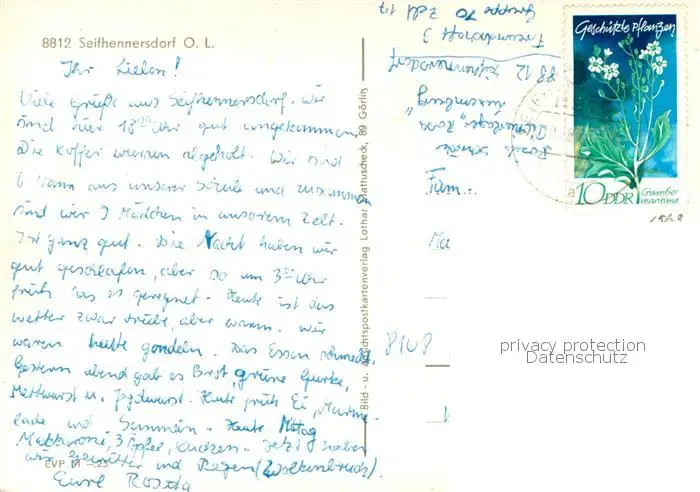 8812 Seifhennersdorf O. L.
Ihr Lieben!
Viele Grüße aus Seifhennersdorf. Wir
sind hier 18 Uhr gut angekommen.
Die Koffer wurden abgeholt. Wir sind
6 Mann aus unserer Schule und zusammen
sind wir 9 Mädchen in unserem Zelt.
Ist ganz gut. Die Nacht haben wir
gut geschlafen, aber so um 3 Uhr
früh hat es geregnet. Heute ist das
Wetter zwar trübe, aber warm. Wir
waren heute gondeln. Das Essen schmeckt.
Gestern abend gab es Brot, grüne Gurke,
Mettwurst u. Jagdwurst. Heute früh Ei, Marme-
lade und Semmeln. Heute Mittag
Makkaroni, 3 Äpfel, Kuchen. Jetzt haben
wir Gewitter und Regen (Wolkenbruch).
Eure
EVP M -.25
Bild- u. Ansichtspostkartenverlag Lothar Gattuscheck, 89 Görlitz
Gruppe 70 Zelt 17
8812 Seifhennersdorf
"Rosa
Luxemburg"
Fam.
Ma
8108
Geschützte Pflanzen
10 DDR
Crambe
maritima
privacy protection
Datenschutz